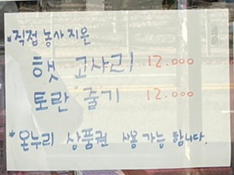 •직접 농사지은
햇 고사리 12.000
토란 줄기 12.000
*온누리 상품권 사용 가능 합니다.